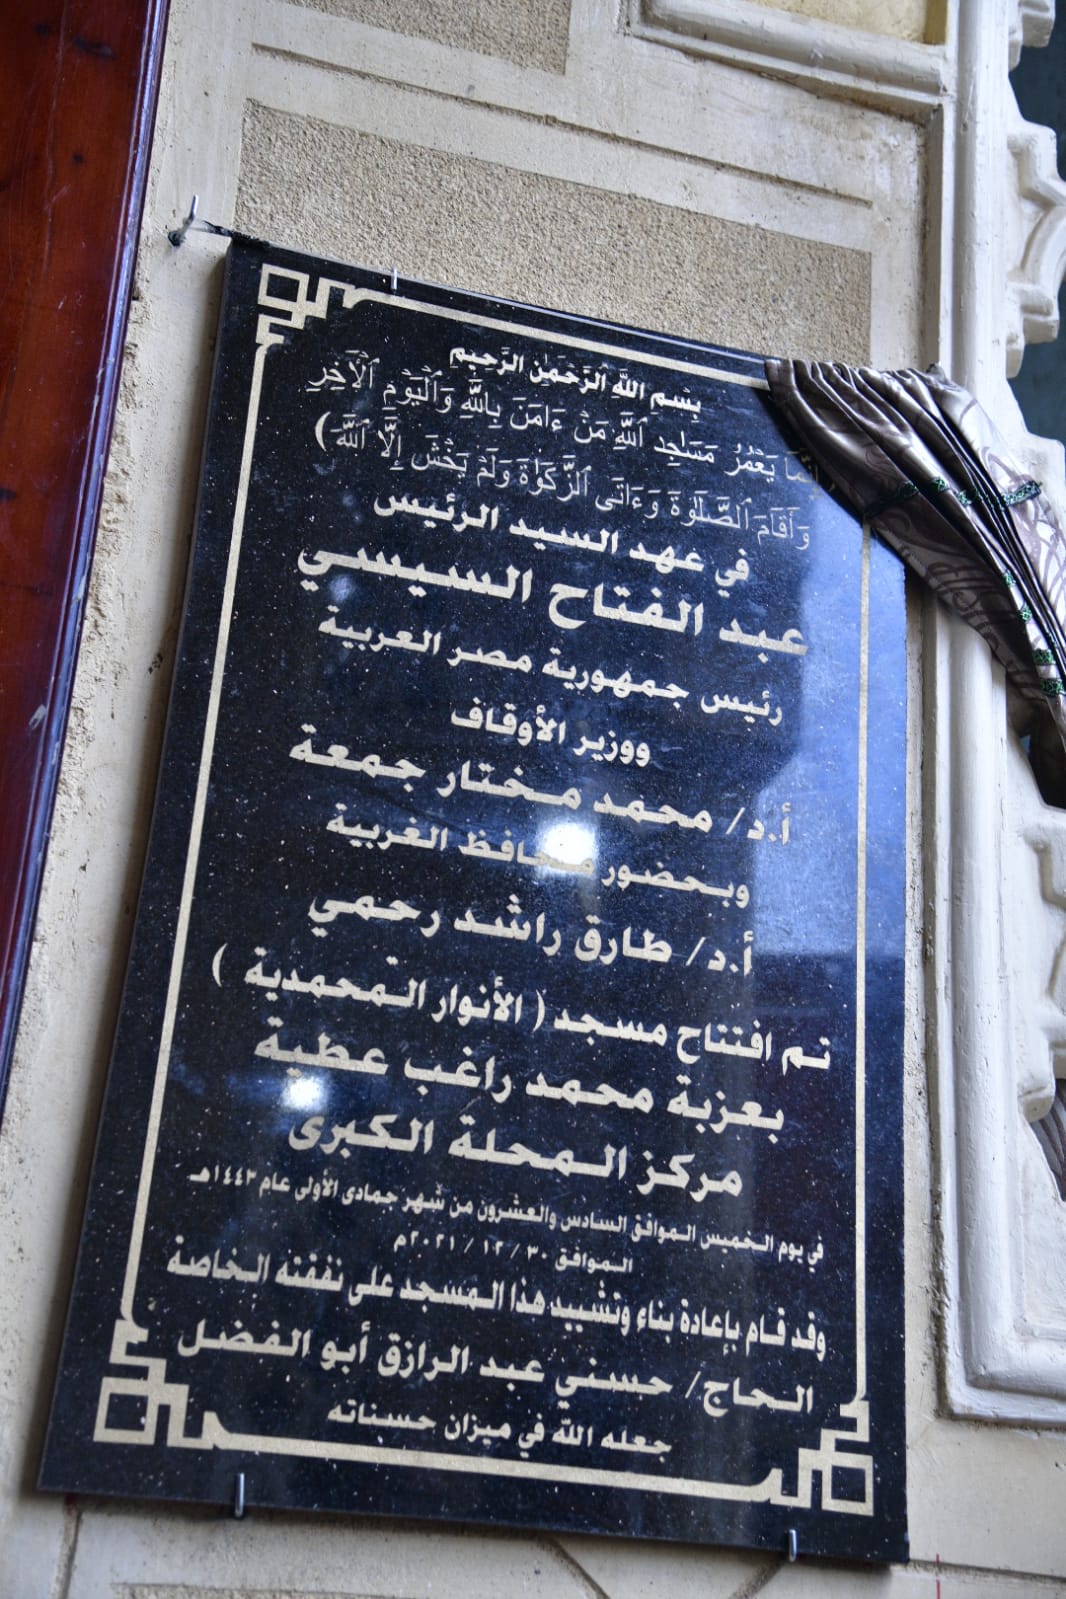 بِسْمِ اللَّهِ الرَّحْمَٰنِ الرَّحِيمِ
إِنَّمَا يَعْمُرُ مَسَٰجِدَ ٱللَّهِ مَنْ ءَامَنَ بِٱللَّهِ وَٱلْيَوْمِ ٱلْآخِرِ
وَأَقَامَ ٱلصَّلَوٰةَ وَءَاتَى ٱلزَّكَوٰةَ وَلَمْ يَخْشَ إِلَّا ٱللَّهَ)
في عهد السيد الرئيس
عبد الفتاح السيسي
رئيس جمهورية مصر العربية
ووزير الأوقاف
أ.د/ محمد مختار جمعة
وبحضور محافظ الغربية
أ.د/ طارق راشد رحمي
تم افتتاح مسجد ( الأنوار المحمدية )
بعزبة محمد راغب عطية
مركز المحلة الكبرى
في يوم الخميس الموافق السادس والعشرون من شهر جمادى الأولى عام ١٤٤٣هـ
الموافق ٣٠ / ١٢ / ٢٠٢١م
وقد قام بإعادة بناء وتشييد هذا المسجد على نفقته الخاصة
الحاج/ حسني عبد الرازق أبو الفضل
جعله الله في ميزان حسناته